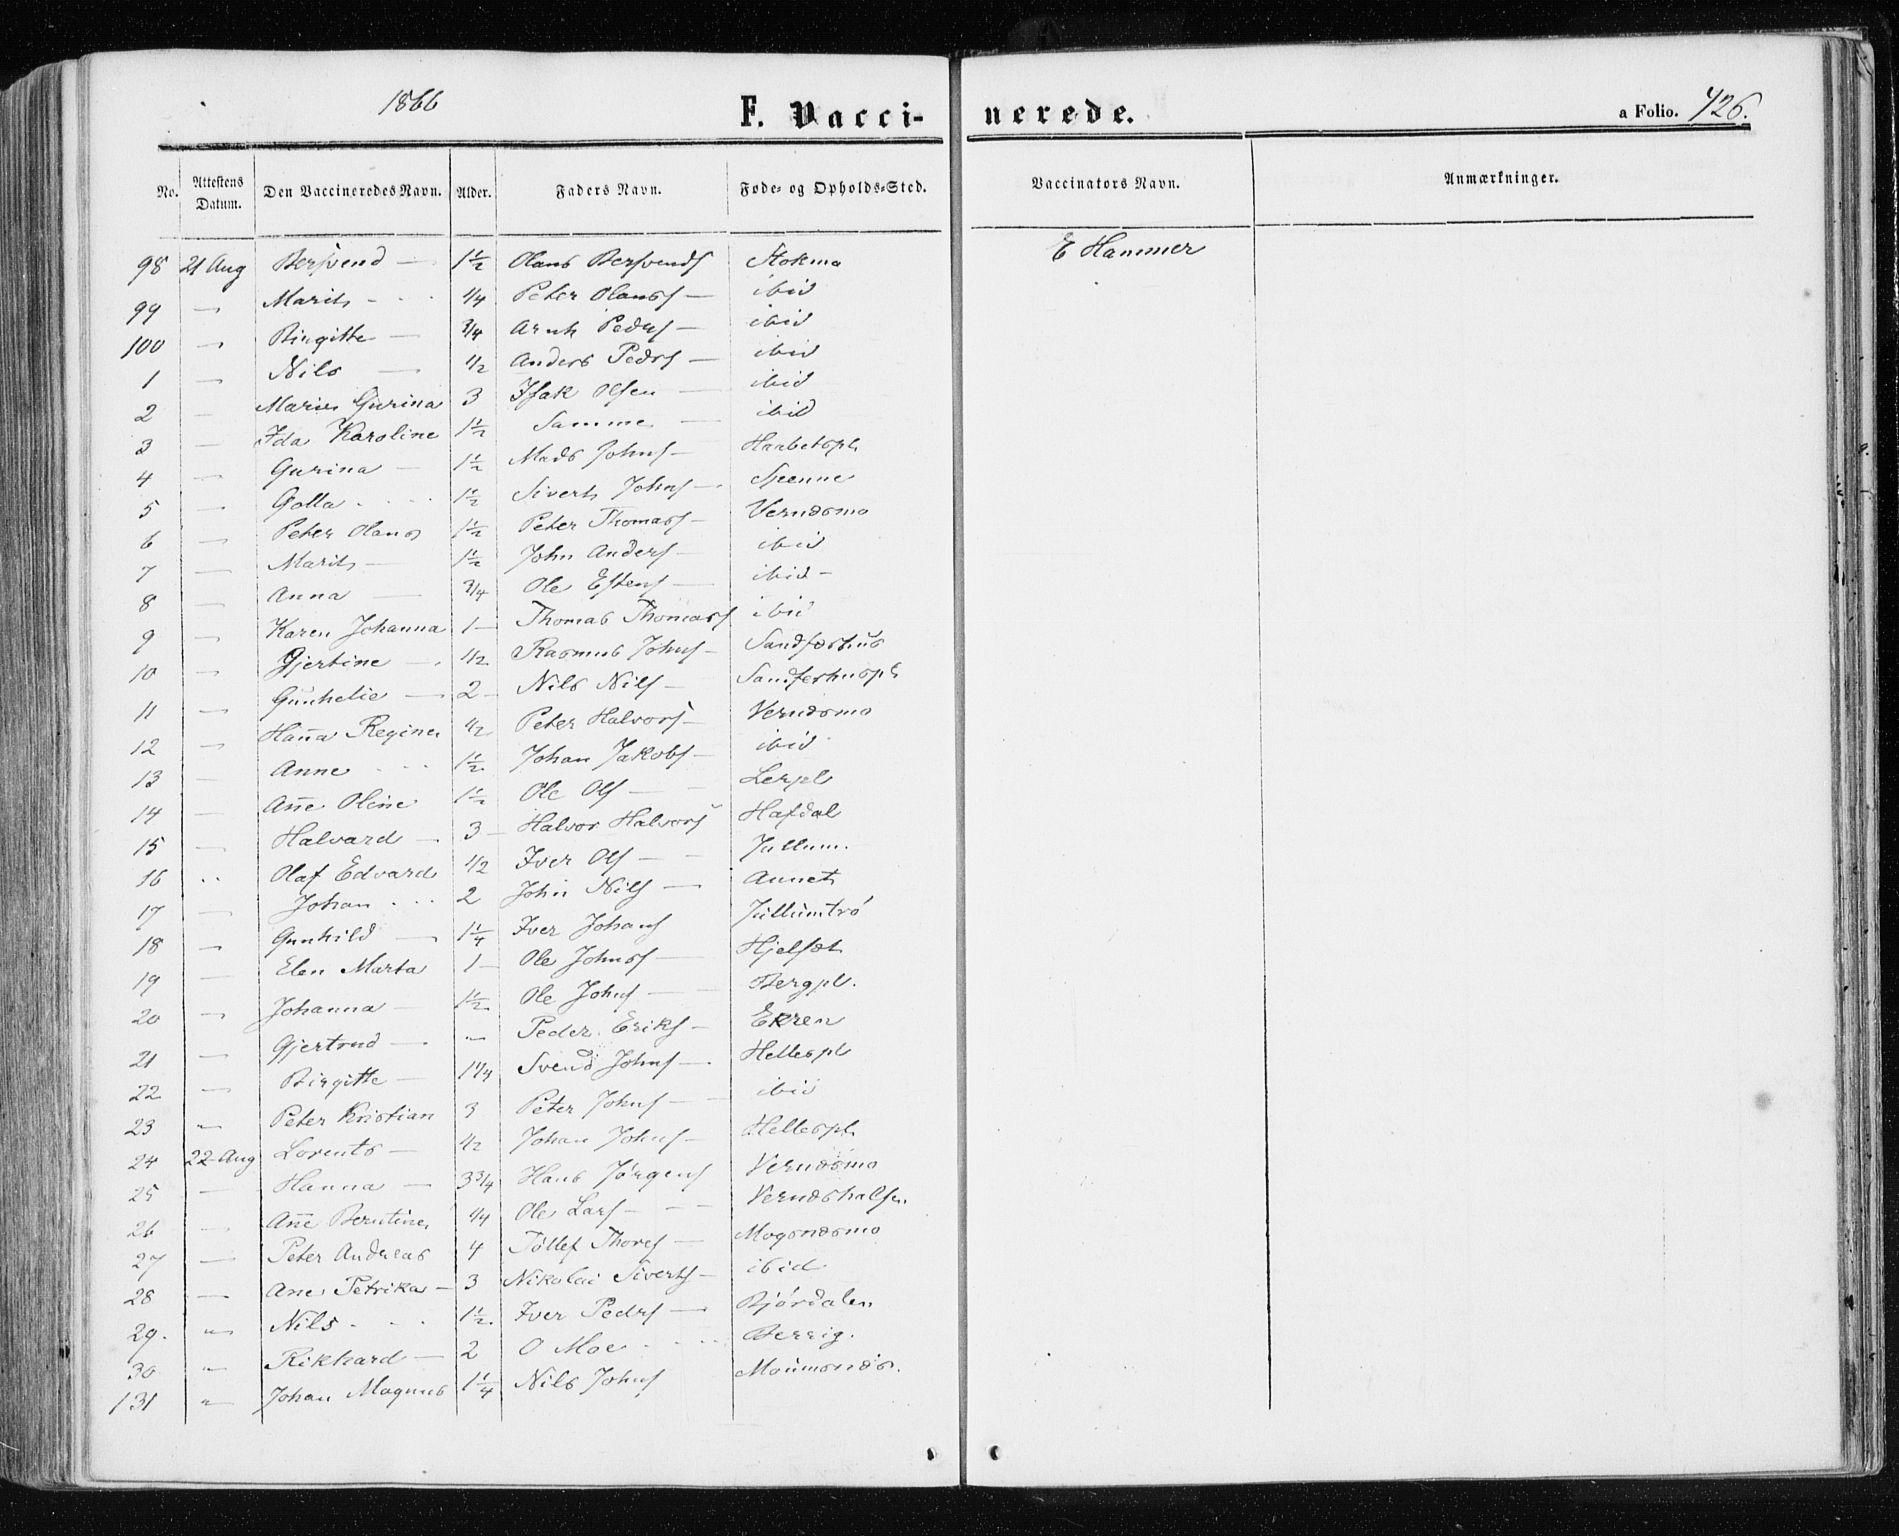 1866 F. Vacci- nerede. a Folio. 426.
No. Attestens Datum. Den Vaccineredes Navn. Alder. Faders Navn. Føde- og Opholds-Sted. Vaccinators Navn. Anmærkninger.
98 21 Aug Bersvend — 1½ Olaus Bersvends Stokmo E Hammer
99 — Marit - - - 1/4 Peter Olauss — ibid
100 — Birgitte — 3/4 Arnt Peders — ibid
1 — Nils — 1/2 Anders Peders — ibid
2 — Marie Gurina 3 Isak Olsen — ibid
3 — Ida Karoline 1½ Samme — ibid
4 — Gurina — 1½ Mads Johns — Haabetspl
5 — Golla - - - 1½ Sivert Johns —
6 — Peter Olaus 1½ Peter Thomass — Vernæsmo
7 — Marit — 1½ John Anders — ibid
8 — Anna — 3/4 Ole Estens — ibid —
9 — Karen Johanna 1 — Thomas Thomass ibid
10 — Gjertine — 1/2 Rasmus Johns — Sandferhus
11 — Gunhelie — 2 — Nils Nils — Sandferhuspl
12 — Hanna Regine 1/2 Peter Halvors — Vernæsmo
13 — Anne - - - 1½ Johan Jakobs — ibid
14 — Anne Oline 1½ Ole Ols — Lerpl
15 — Halvard — 3 — Halvor Halvors Hafdal
16 - - Olaf Edvard 1/2 Iver Ols — Jullum.
17 — Johan - - - 2 John Nils — Aunet
18 — Gunhild — 1¼ Iver Johans Jullumtrø
19 — Elen Marta 1 — Ole Johns — Hjelset
20 — Johanna — 1½ Ole Johns — Bergpl.
21 — Gjertrud — " Peder Eriks — Ekren
22 — Birgitte — 1¼ Svend Johns — Hellespl
23 " Peter Kristian 3 Peter Johns — ibid
24 22 Aug Lorents — 1/2 Johan Johns — Hellespl
25 — Hanna — 3¾ Hans Jørgens Vernæsmo
26 — Anne Berntine 1/4 Ole Lars — Vernæshalsen
27 — Peter Andreas 4 Tøllef Thores — Mogsnæsmo
28 — Ane Petrika — 3 Nikolai Siverts — ibid
29. " Nils - - - 1½ Iver Peders — Bjørdalen
30 " Rikhard — 2 O Moe - - - Berrig.
131 " Johan Magnus 1¼ Nils Johns